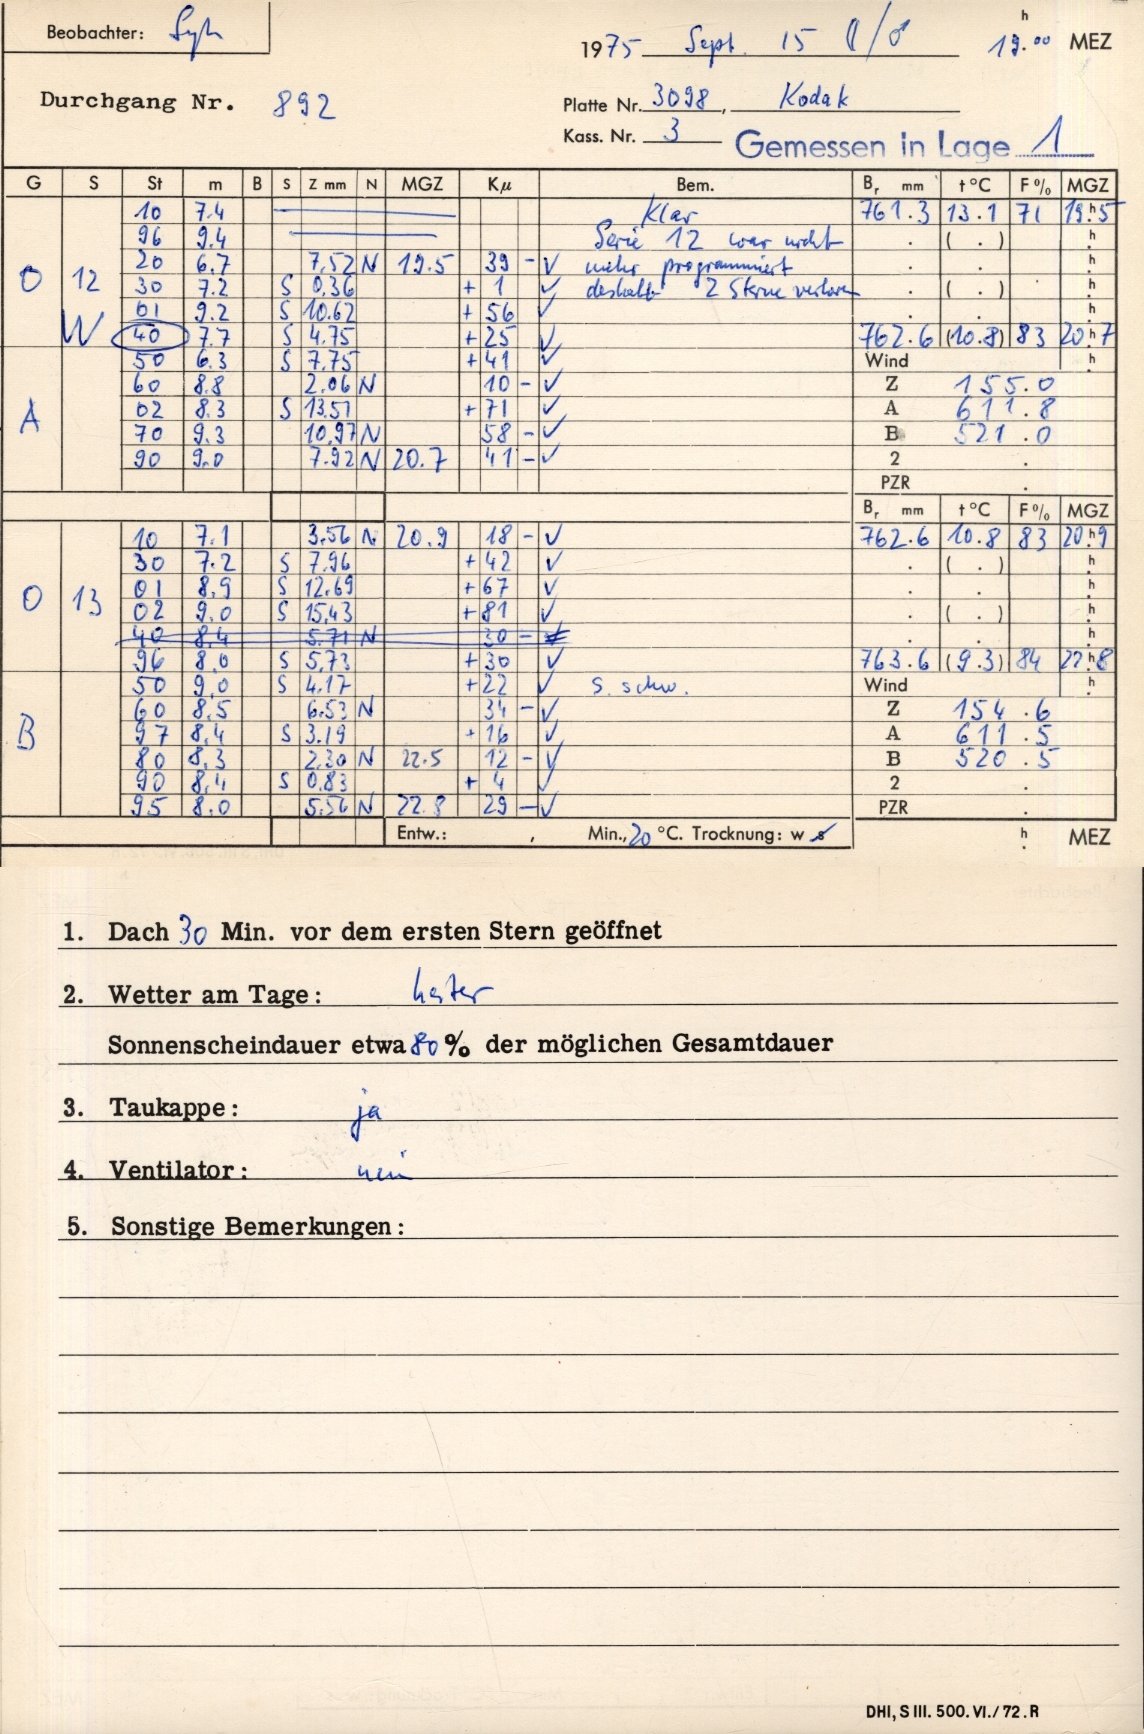 Beobachter:
1975 Sept. 15 h 19.00 MEZ
Durchgang Nr. 892
Platte Nr. 3098, Kodak
Kass. Nr. 3 Gemessen in Lage 1
G S St m B S Z mm N MGZ Kμ Bem. Br mm t°C F% MGZ
10 7.4 Klar 761.3 13.1 71 19h5
96 9.4 Serie 12 war nicht . ( . ) h
20 6.7 7,52 N 19.5 39 - √ mehr programmiert . . h
O 12 30 7.2 S 0,36 + 1 √ deshalb 2 Sterne verloren . ( . ) h
01 9.2 S 10.62 + 56 √ . . h
W 40 7.7 S 4.75 + 25 √ 762.6 (10.8) 83 20h7
50 6.3 S 7.75 + 41 √ Wind h
60 8.8 2.06 N 10 - √ Z 155.0
A 02 8.3 S 13.51 + 71 √ A 611.8
70 9.3 10,97 N 58 - √ B 521.0
90 9.0 7.92 N 20.7 41 - √ 2 .
PZR .
Br mm t°C F% MGZ
10 7.1 3,56 N 20.9 18 - √ 762.6 10.8 83 20h9
30 7.2 S 7,96 + 42 √ . ( . ) h
O 13 01 8,9 S 12.69 + 67 √ . . h
02 9.0 S 15,43 + 81 √ . ( . ) h
40 8,4 5.71 N 30 - . . h
96 8.0 S 5,73 + 30 √ 763.6 (9.3) 84 22h8
50 9,0 S 4.17 + 22 √ s. schw. Wind h
60 8,5 6.53 N 34 - √ Z 154.6
B 97 8,4 S 3.19 + 16 √ A 611.5
80 8,3 2,30 N 22.5 12 - √ B 520.5
90 8,4 S 0,83 + 4 √ 2 .
95 8.0 5,56 N 22.8 29 - √ PZR .
Entw.: , Min., 20 °C. Trocknung: w s h MEZ
1. Dach 30 Min. vor dem ersten Stern geöffnet
2. Wetter am Tage: heiter
Sonnenscheindauer etwa 80 % der möglichen Gesamtdauer
3. Taukappe: ja
4. Ventilator: nein
5. Sonstige Bemerkungen:
DHI, S III. 500. VI./72. R